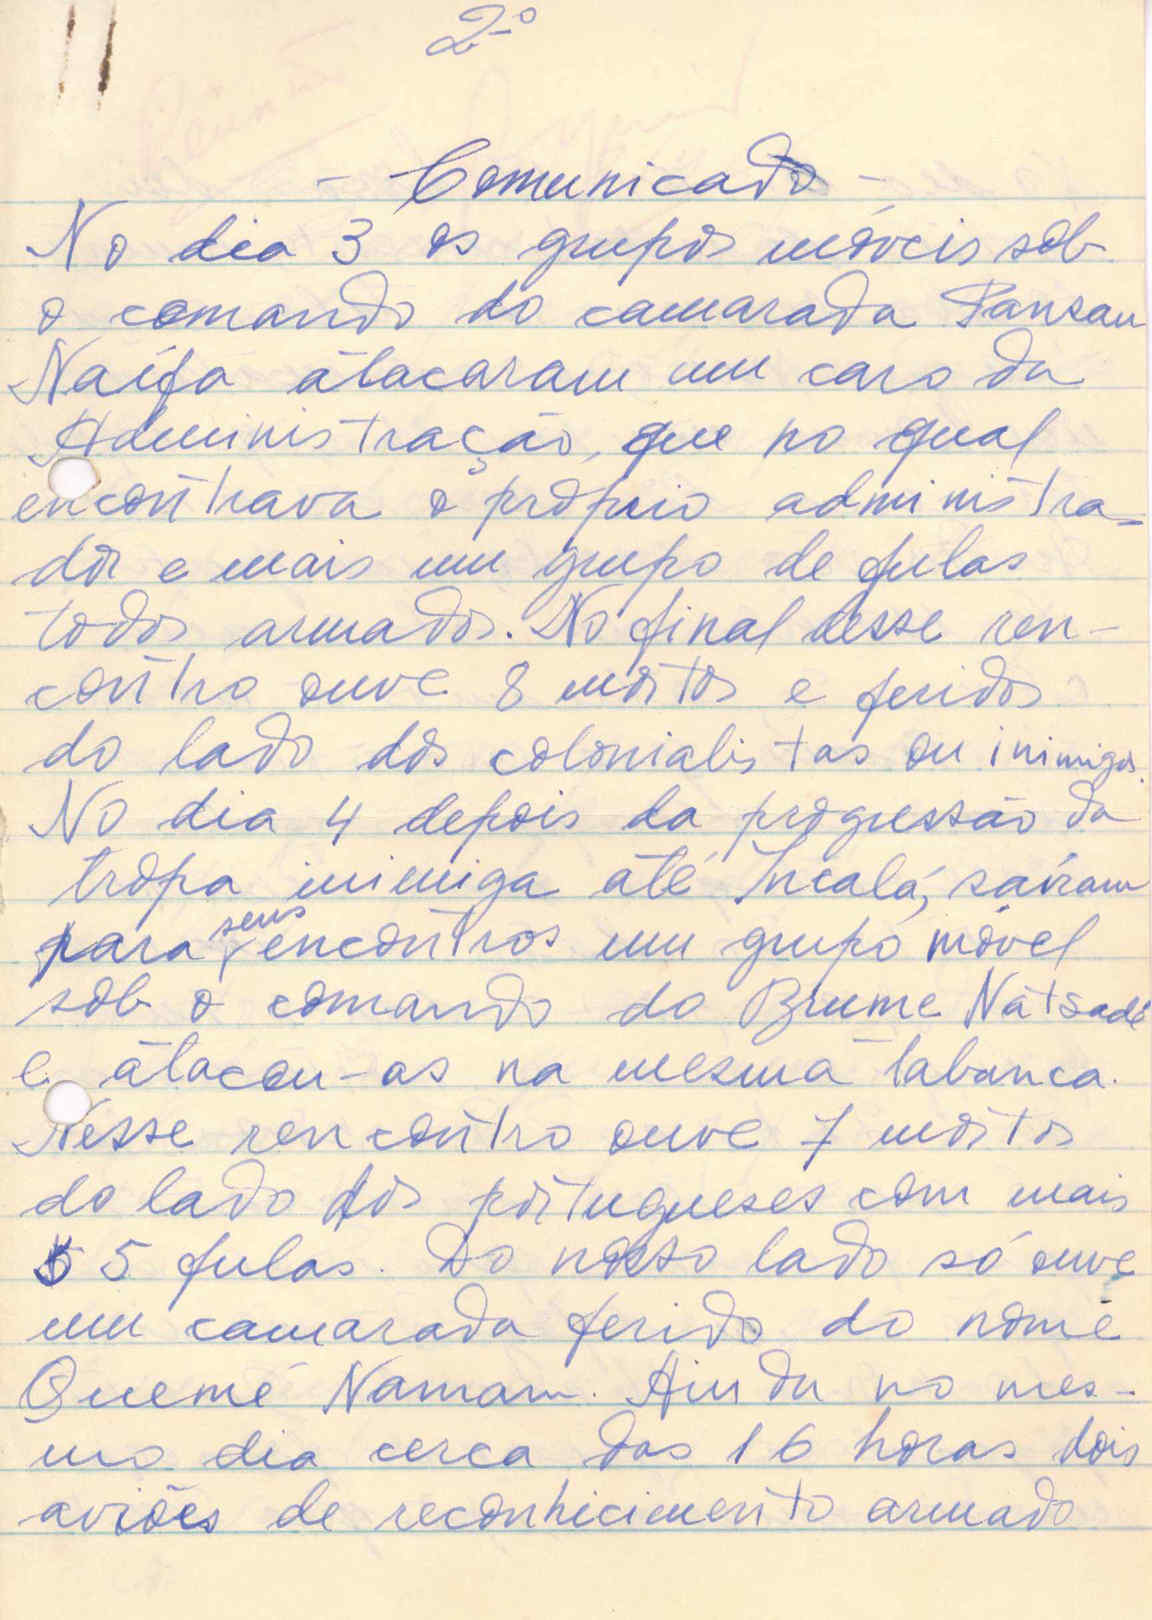 2º
- Comunicado -
No dia 3 os grupos móveis sob
o comando do camarada Pansau
Naífa atacaram um caro da
Administração, que no qual
encontrava o próprio administra-
dor e mais um grupo de fulas
todos armados. No final desse ren-
contro ouve 8 mortos e feridos
do lado dos colonialistas ou inimigos.
No dia 4 depois da progressão da
tropa inimiga até Incalá, saíram
para seus encontros um grupo móvel
sob o comando do Brume Natsadé
e atacou-as na mesma tabanca.
Nesse rencontro ouve 7 mortos
do lado dos portugueses com mais
5 fulas. Do nosso lado só ouve
um camarada ferido do nome
Quemé Namam. Ainda no mes-
mo dia cerca das 16 horas dois
aviões de reconhicimento armado